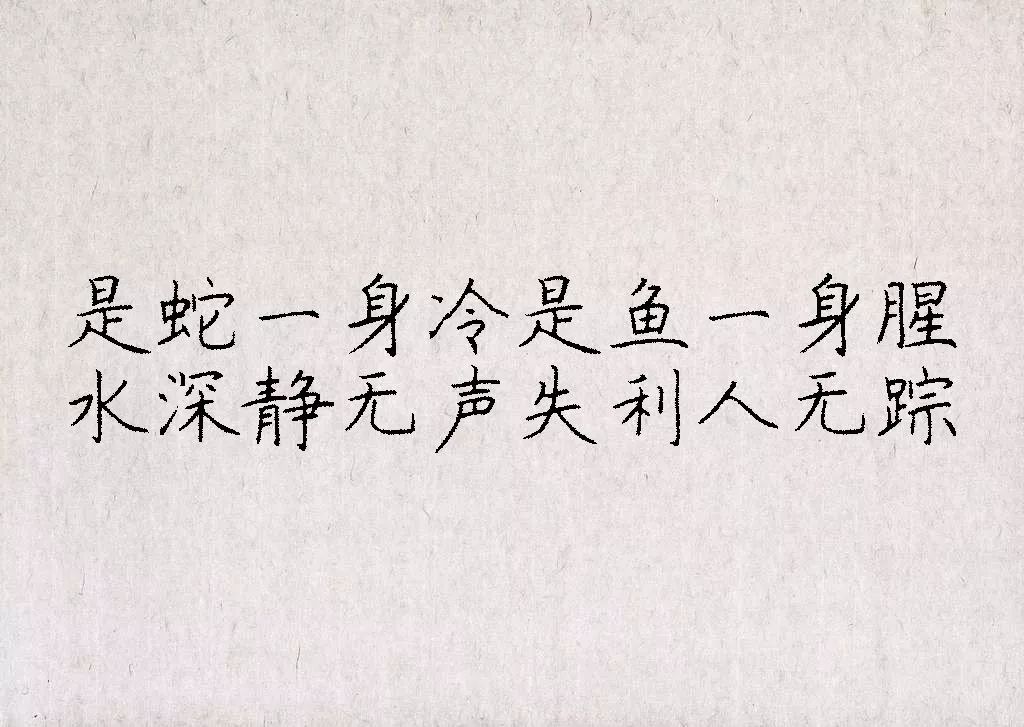 是蛇一身冷是鱼一身腥
水深静无声失利人无踪